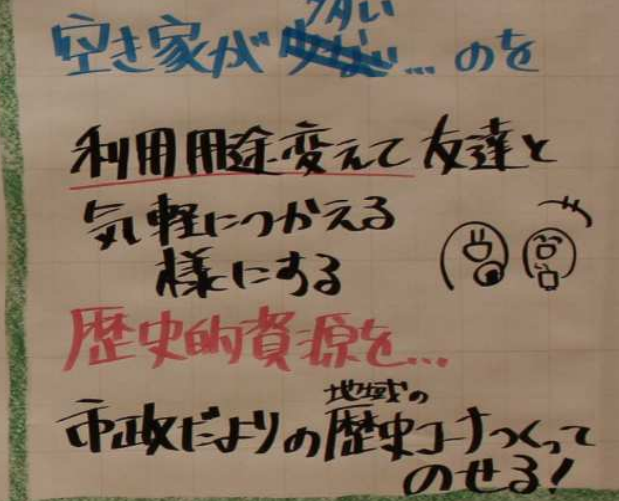 空き家が多い…のを
利用用途変えて友達と
気軽につかえる
様にする
歴史的資源を…
市政だよりの地域の歴史コーナつくって
のせる!